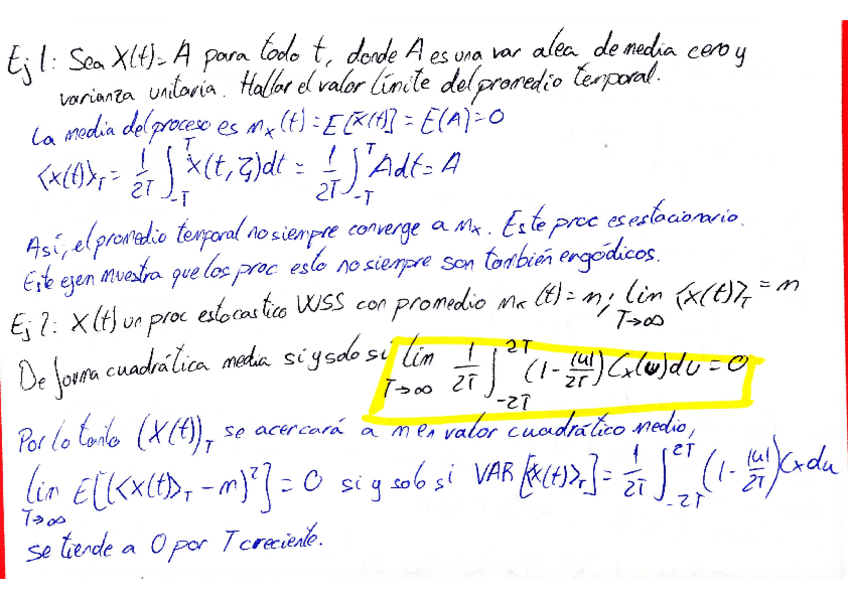 Ej 1: Sea X(t)=A para todo t, donde A es una var alea de media cero y
varianza unitaria. Hallar el valor límite del promedio temporal.
La media del proceso es mₓ(t)=E[X(t)]=E(A)=0
<x(t)>_T = 1/2T ∫_{-T}^{T} X(t,ζ)dt = 1/2T ∫_{-T}^{T} A dt = A
Así, el promedio temporal no siempre converge a mₓ. Este proc es estacionario.
Este ejem muestra que los proc esta no siempre son también ergódicos.
Ej 2: X(t) un proc estocastico WSS con promedio mₓ(t)=m; lim_{T→∞} <x(t)>_T = m
De forma cuadrática media si y solo si lim_{T→∞} 1/2T ∫_{-2T}^{2T} (1-|u|/2T) Cₓ(u)du=0
Por lo tanto (X(t))_T se acercará a m en valor cuadrático medio,
lim_{T→∞} E[(<x(t)>_T - m)²] = 0 si y solo si VAR[<x(t)>_T] = 1/2T ∫_{-2T}^{2T} (1-|u|/2T) Cx du
se tiende a 0 por T creciente.